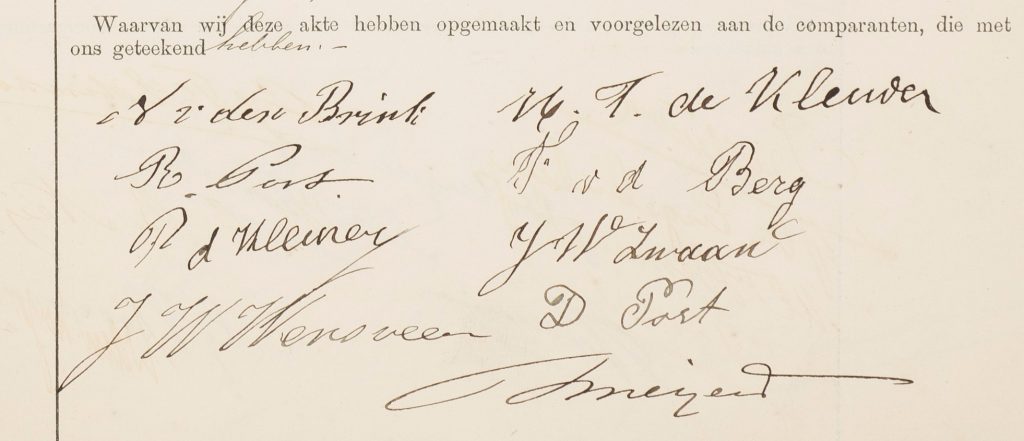 Waarvan wij deze akte hebben opgemaakt en voorgelezen aan de comparanten, die met
ons geteekend hebben.-
v den Brink
H. T. de Kleuver
R. Post.
T. v d Berg
R d
J W Zwaan
J W
D Post